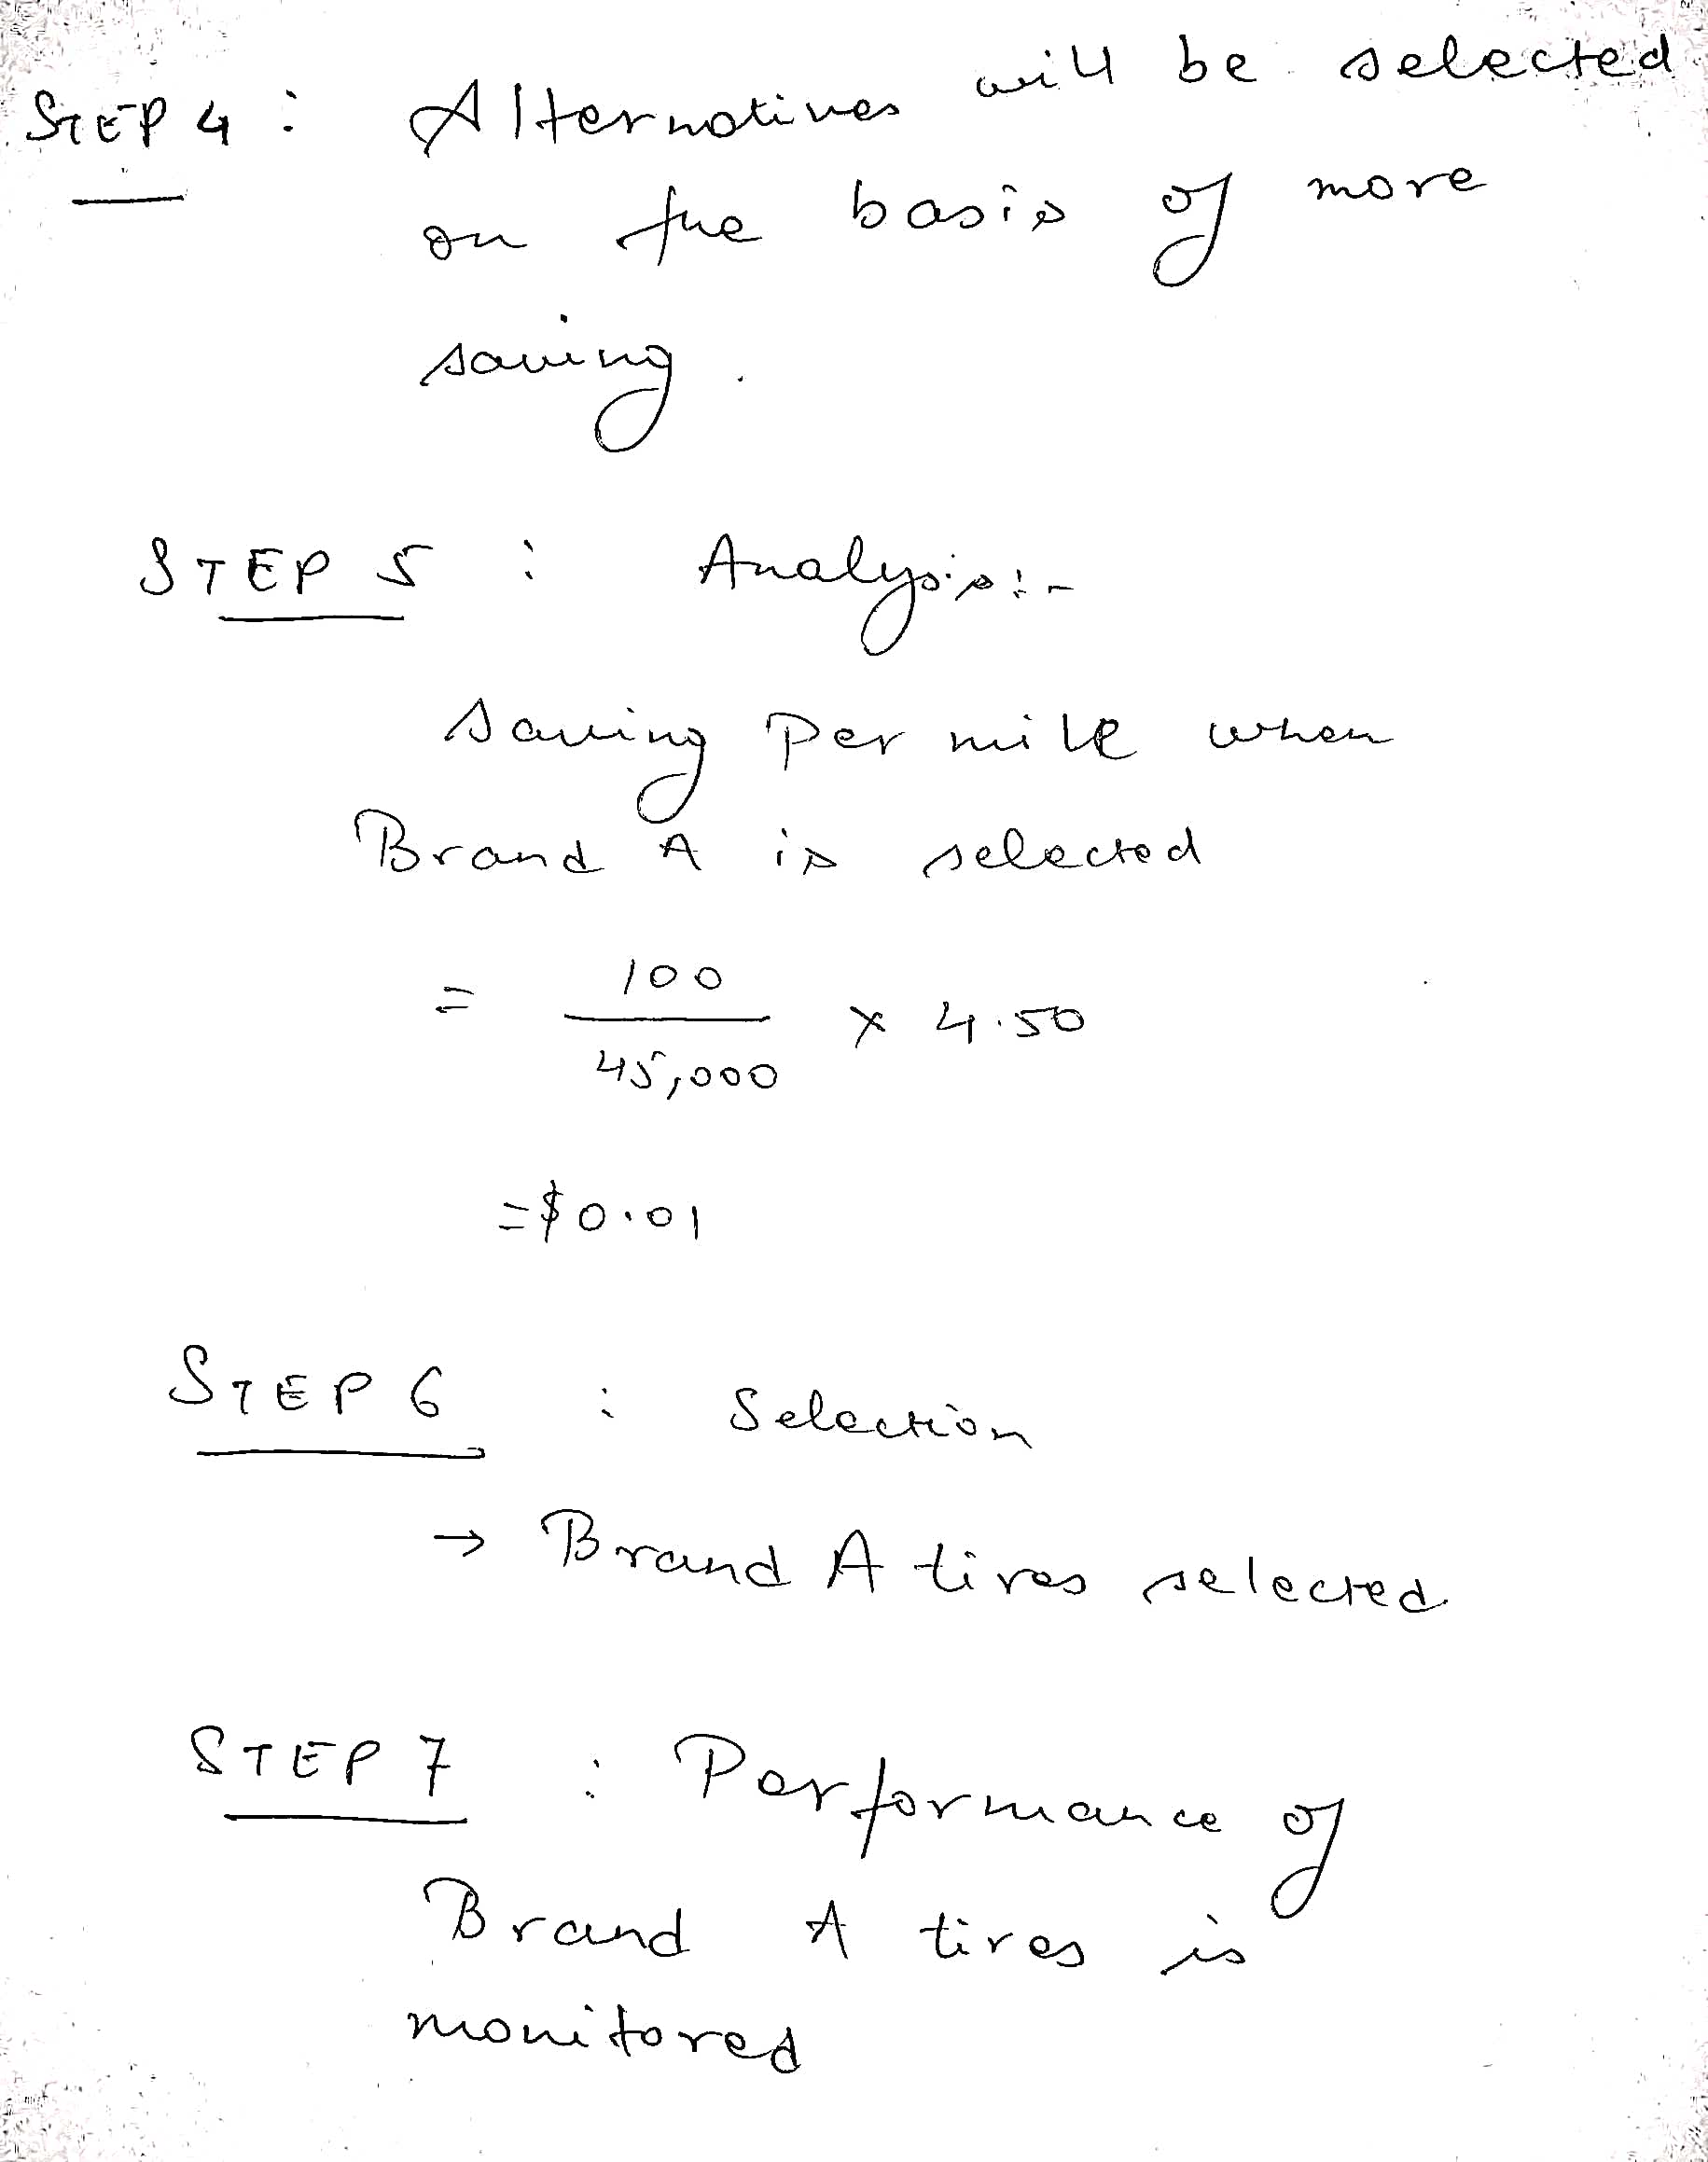 STEP 4 : Alternatives will be selected
on the basis of more
saving.
STEP 5 : Analysis:-
saving per mile when
Brand A is selected
= 100/45,000 × 4.50
=$0.01
STEP 6 : Selection
→ Brand A tires selected.
STEP 7 : Performance of
Brand A tires is
monitored